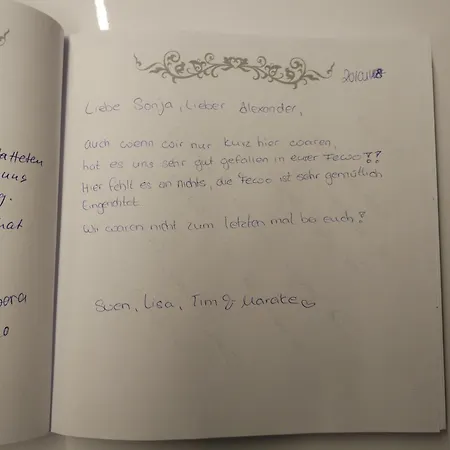 atteten
uns
g.
hat
ora
o
Liebe Sonja, Lieber Alexander,
auch wenn wir nur kurz hier waren,
hat es uns sehr gut gefallen in eurer Fewo!!
Hier fehlt es an nichts, die Fewo ist sehr gemütlich
Eingerichtet.
Wir waren nicht zum letzten mal bei euch!
Swen, Lisa, Tim & Mareike